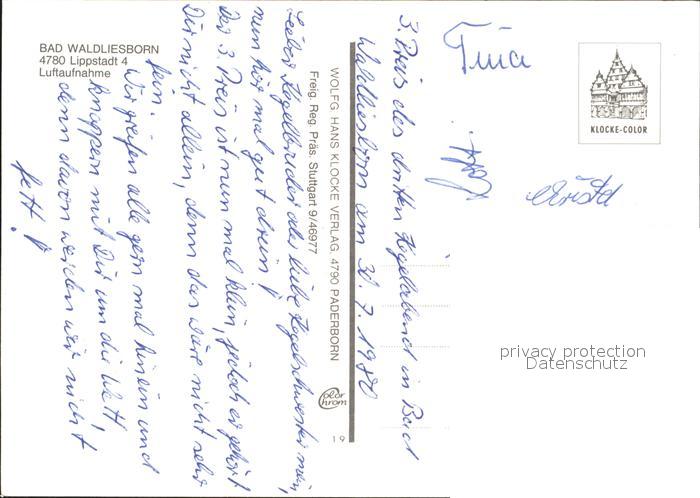 BAD WALDLIESBORN
4780 Lippstadt 4
Luftaufnahme
3. Preis des dritten Kegelabend in Bad
Waldliesborn am 30.7.1980
Lieber Kegelbruder oder liebe Kegelschwester mein,
nun hör mal gut drein!
Der 3. Preis ist nun mal klein, jedoch er gehört
Dir nicht allein, denn das wäre nicht sehr
fein.
Wir greifen alle gern mal hinein und
knappern mit Dir um die Wett,
denn davon werden wir nicht
fett!
WOLFG. HANS KLOCKE VERLAG, 4790 PADERBORN
Freig. Reg. Präs. Stuttgart 9/46977
Color
Chrom
19
Tina
Christel
KLOCKE-COLOR
privacy protection
Datenschutz